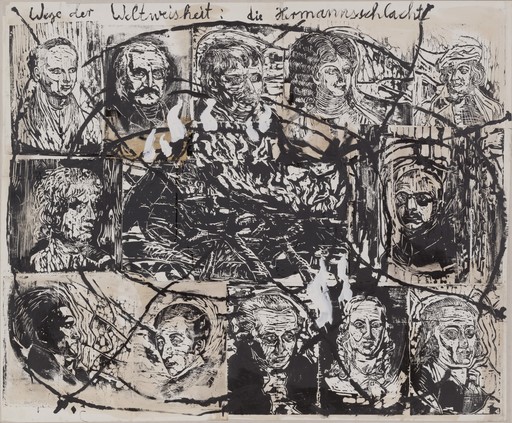 Wege der Weltweisheit: die Hermannsschlacht